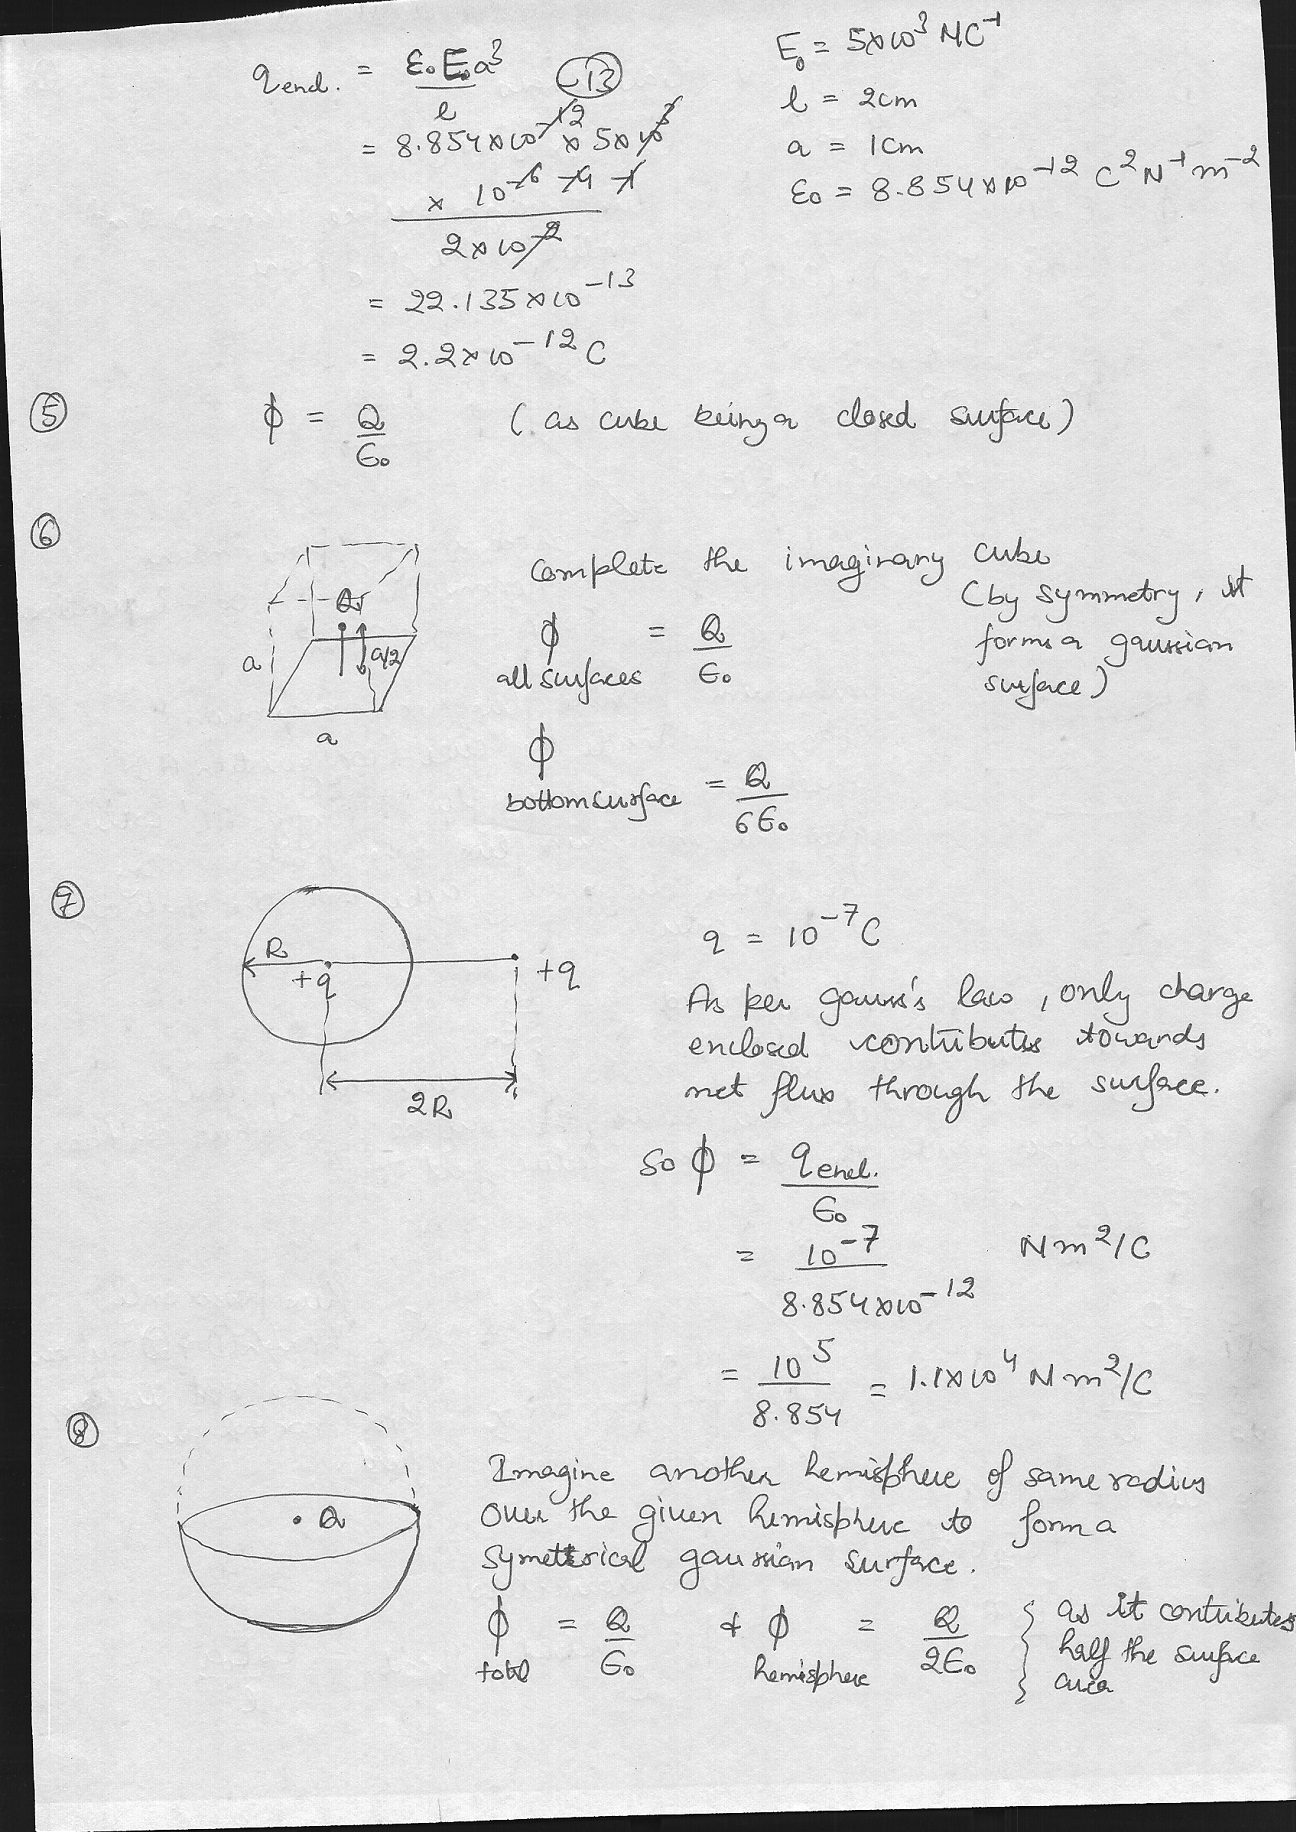 q encl. = ε₀E₀a³ / l
-13
= 8.854×10⁻¹² × 5×10³
× 10⁻⁶ ⁻⁹ ⁻¹
2×10⁻²
= 22.135×10⁻¹³
= 2.2×10⁻¹² C
E₀ = 5×10³ NC⁻¹
l = 2cm
a = 1cm
ε₀ = 8.854×10⁻¹² C²N⁻¹m⁻²
⑤ ϕ = Q/ϵ₀ (as cube being a closed surface)
⑥
Q
a/2
a
a
Complete the imaginary cube
(by symmetry, it
forms a gaussian
surface)
ϕ all surfaces = Q/ϵ₀
ϕ bottom surface = Q/6ϵ₀
⑦
R
+q
+q
2R
q = 10⁻⁷C
As per gauss's law, only charge
enclosed contributes towards
net flux through the surface.
So ϕ = q encl. / ϵ₀
= 10⁻⁷ / 8.854×10⁻¹² Nm²/C
= 10⁵ / 8.854 = 1.1×10⁴ Nm²/C
⑧
Q
Imagine another hemisphere of same radius
over the given hemisphere to form a
symetrical gaussian surface.
ϕ total = Q/ϵ₀ & ϕ hemisphere = Q/2ϵ₀
as it contributes
half the surface
area